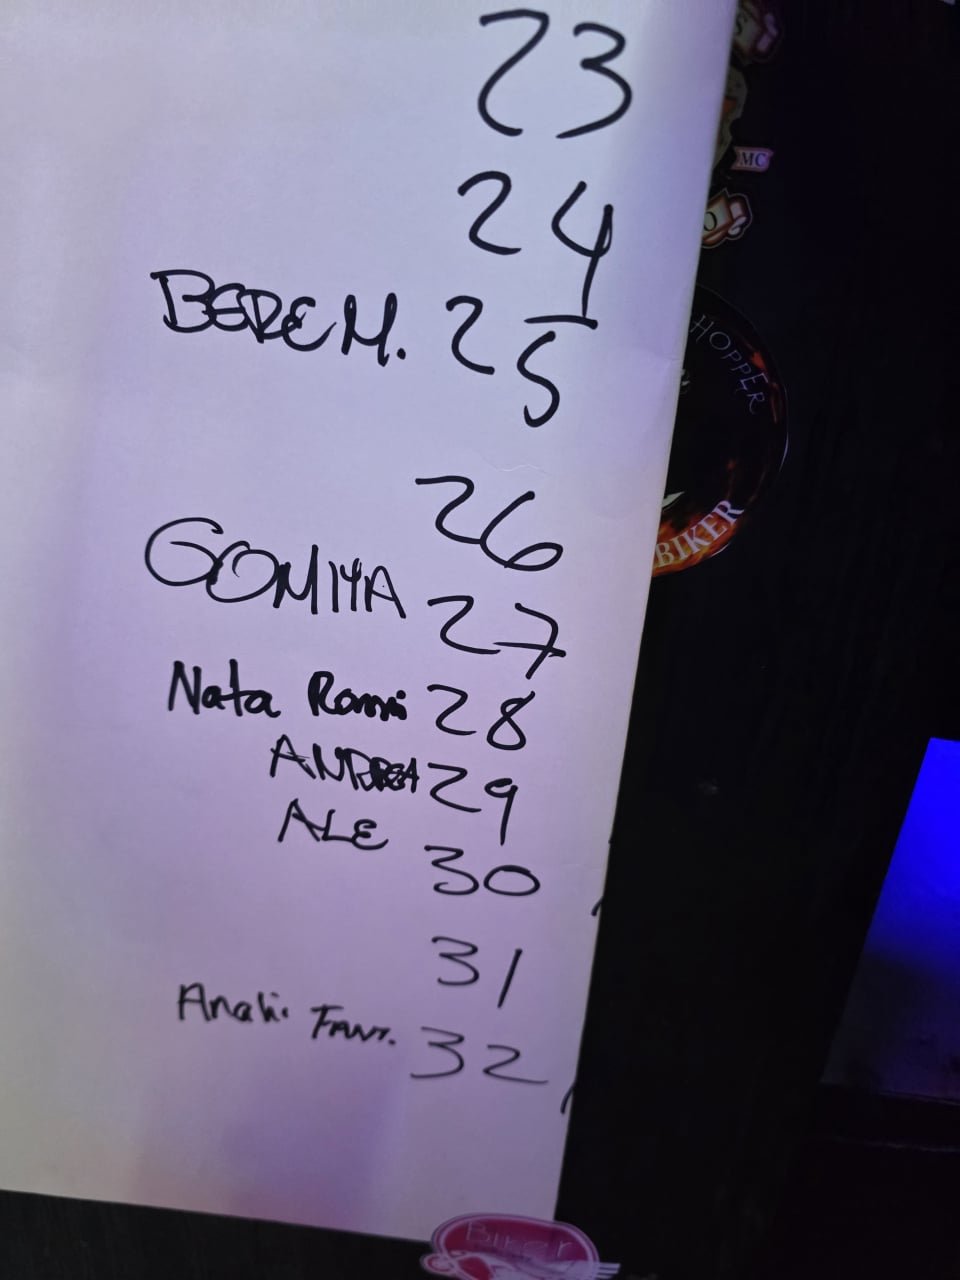 23
24
BEDE M. 25
26
GOMIYA 27
Nata Rossi 28
ANDREA 29
ALE 30
31
Anali. FANT. 32
MC
HOPPER
BIKER
Biker